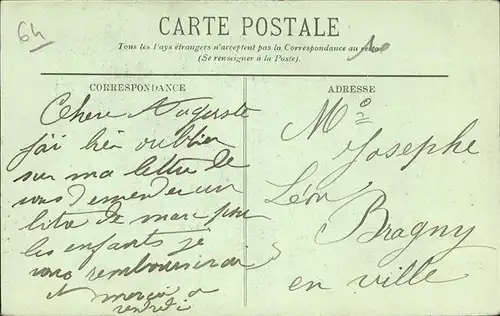 64
CARTE POSTALE
Tous les Pays étrangers n'acceptent pas la Correspondance au
(Se renseigner à la Poste).
CORRESPONDANCE
Chere Auguste
j'ai bien oublier
sur ma lettre de
vous demender un
litre de marc pour
les enfants je
vous rembourserai
et merci a
vendredi
ADRESSE
Mme
Josephe
Léon
Bragny
en ville